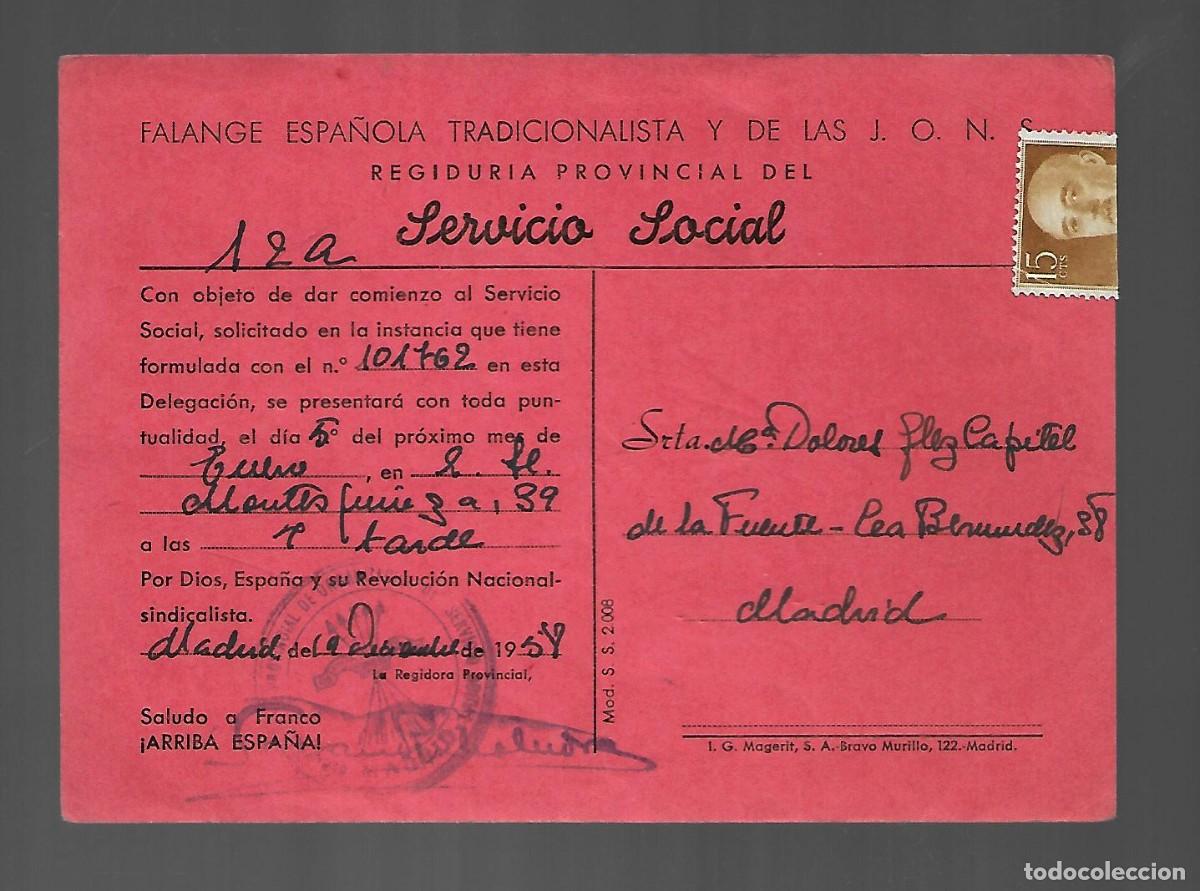 FALANGE ESPAÑOLA TRADICIONALISTA Y DE LAS J. O. N. S.
REGIDURIA PROVINCIAL DEL
Servicio Social
12a
Con objeto de dar comienzo al Servicio
Social, solicitado en la instancia que tiene
formulada con el n.º 101762 en esta
Delegación, se presentará con toda pun-
tualidad, el día 5º del próximo mes de
Enero, en
39
a las 7 tarde
Por Dios, España y su Revolución Nacional-
sindicalista.
Madrid, de Diciembre de 1958
La Regidora Provincial,
Saludo a Franco
¡ARRIBA ESPAÑA!
Mod. S. S. 2.008
15
CTS
Srta. Mª Dolores Glez Capitel
de la Fuente - Cea Bermudez, 38
Madrid
I. G. Magerit, S. A.-Bravo Murillo, 122.-Madrid.
todocoleccion